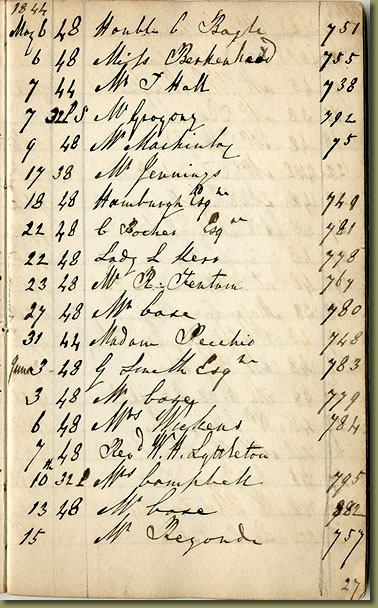 1844
May 6 48 Honble C Bagle 751
6 48 Miss Berkenhead 755
7 44 Mr T Hall 738
7 32 S Mr Grogony 792
9 48 Mr Mackinlay 75
17 38 Mr Jennings
18 48 Hamburgh Esqre 749
22 48 C Esqre 781
22 48 Lady L Kerr 778
23 48 Mr R. Fentum 767
27 48 Mr Case 780
31 44 Madam 748
June 3 48 G Smith Esqre 783
3 48 Mr Case 779
6 48 Mrs Wickens 784
7 48 Revd W. H. Lyttleton
10 32 Mrs Campbell 795
13 48 Mr Case 882
15 Mr Regondi 757
27